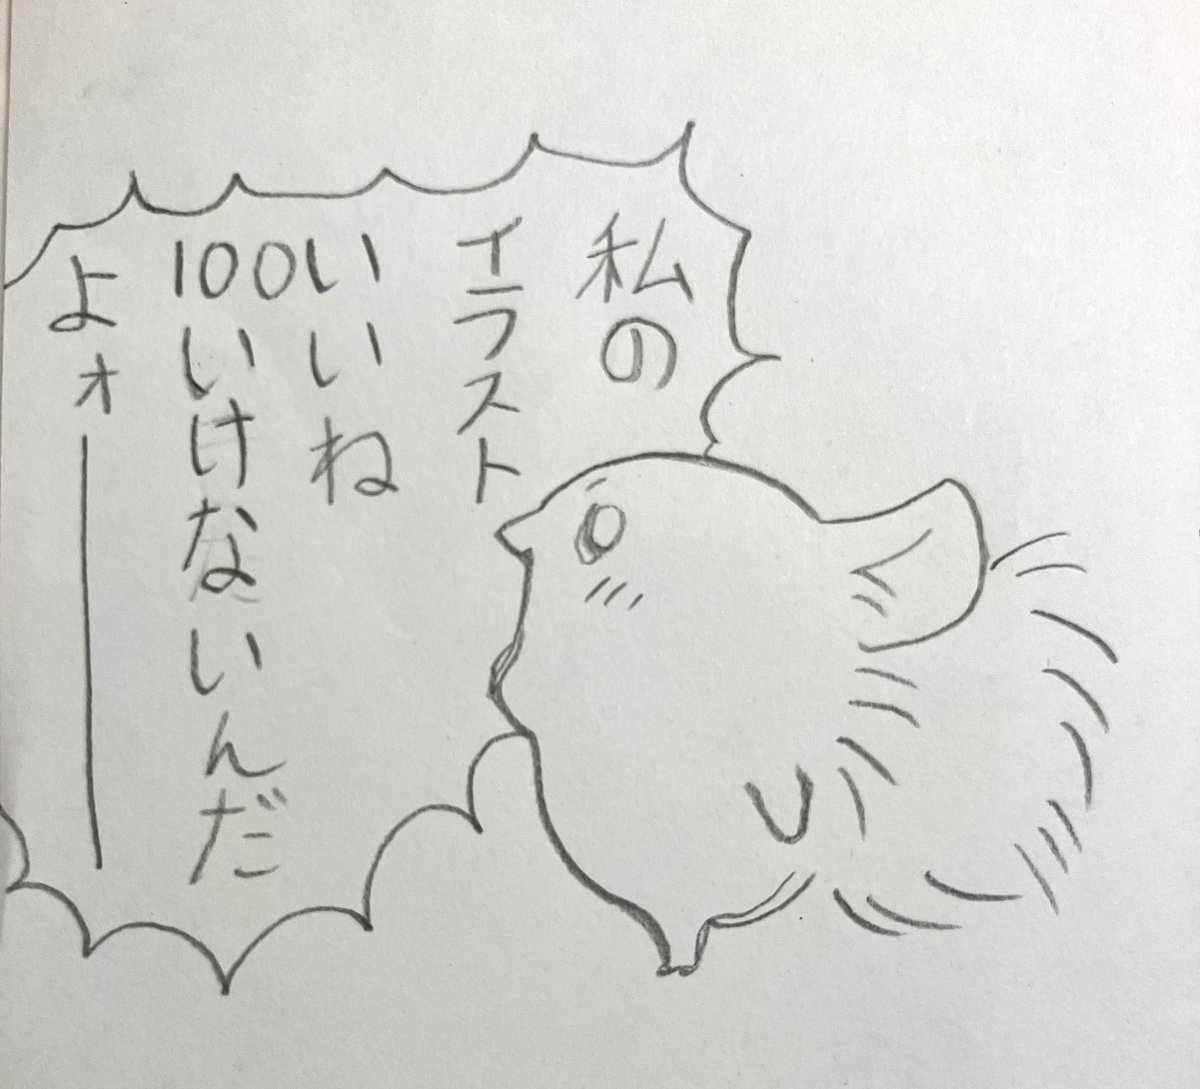 私の
イラスト
いいね
100いけないんだ
よォー